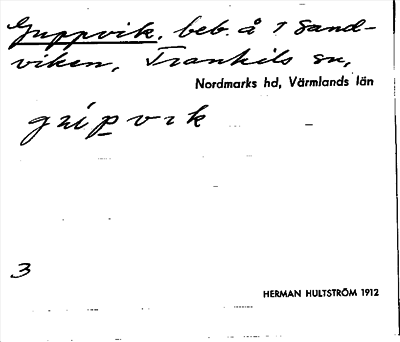 Guppvik, beb. å 1 Sand-
viken, Trankils sn,
Nordmarks hd, Värmlands län
3
HERMAN HULTSTRÖM 1912